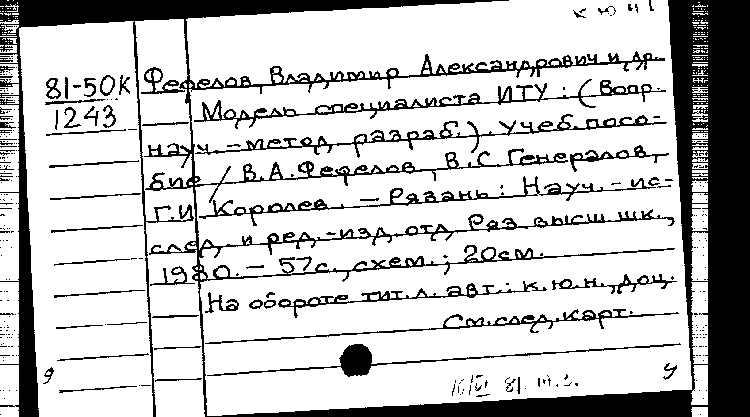 к ю н
81-50К
1243
Фефелов, Владимир Александрович и др.
Модель специалиста ИТУ : (Вопр.
науч.-метод. разраб.). Учеб. посо-
бие / В.А. Фефелов, В.С. Генералов,
Г.И. Королев. — Рязань : Науч.-ис-
след. и ред.-изд. отд. Ряз. высш. шк.,
1980. — 57с., схем. ; 20см.
На обороте тит. л. авт.: к.ю.н., доц.
См. след. карт.
9
81. у